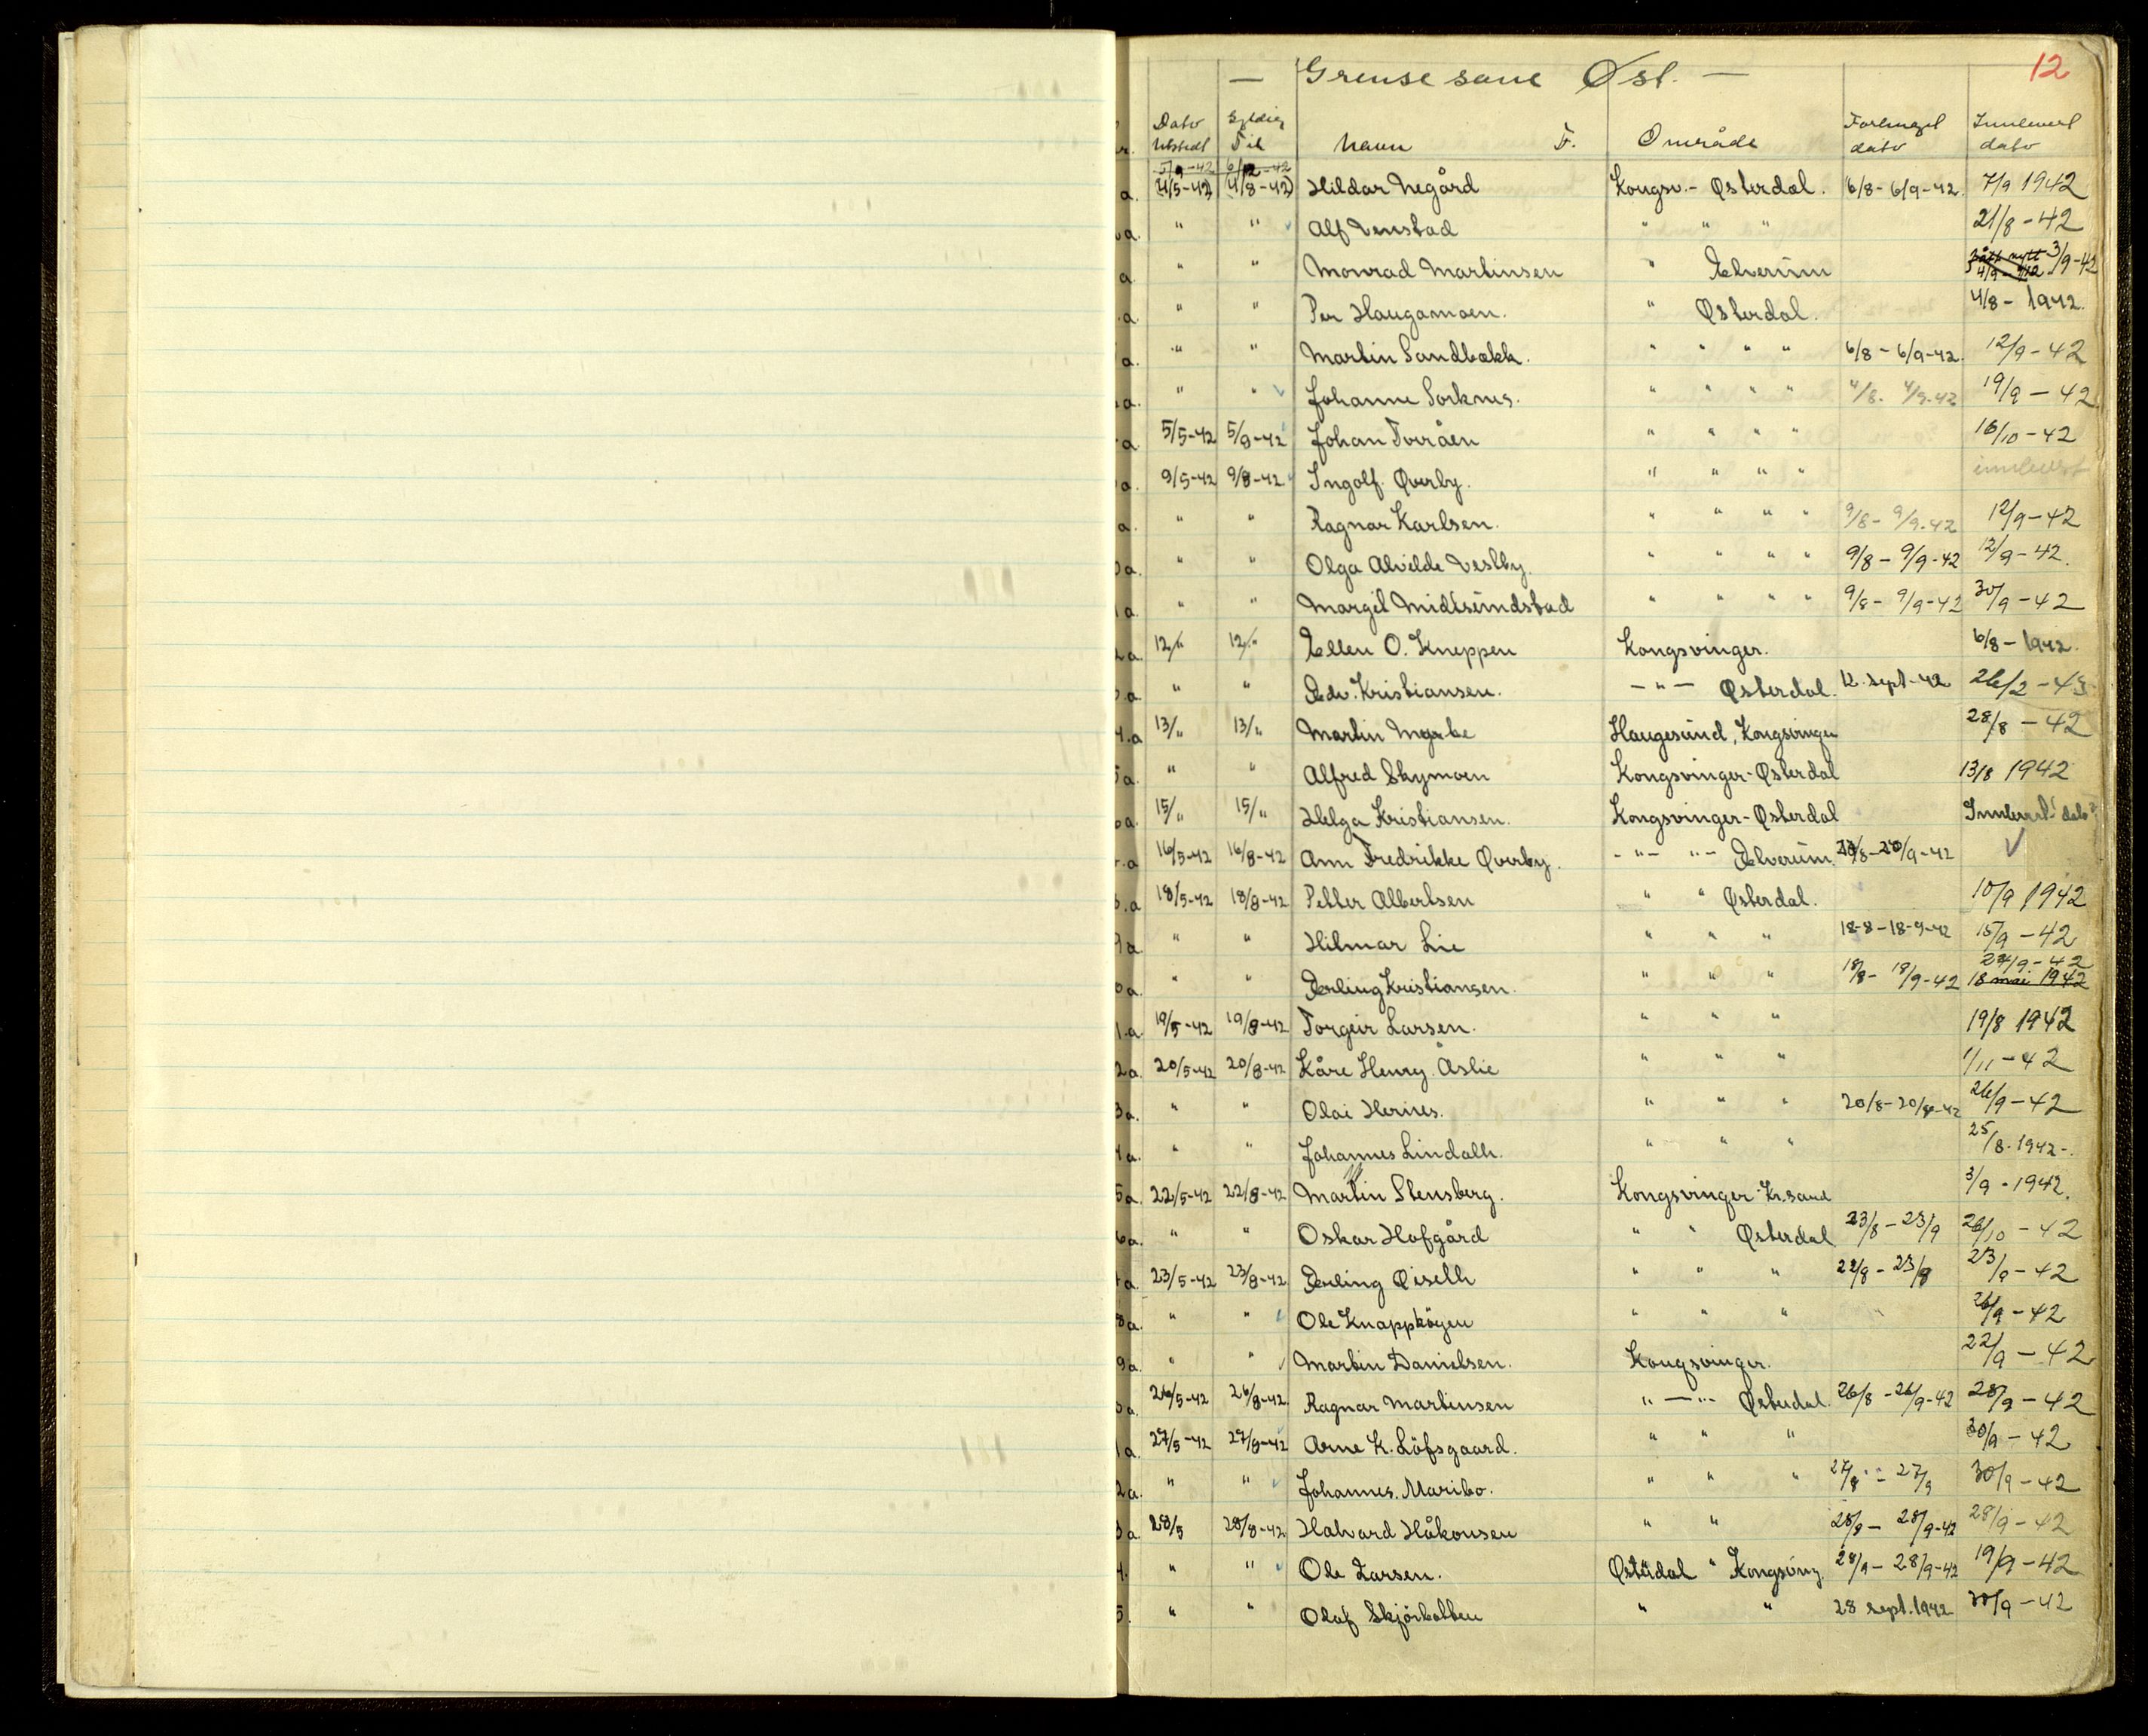 12
— Grense sone Øst. —
Dato utstedt Gyldig Til Navn F. Område Forlenget dato Innlevert dato
5/9-42 6/12-42
a. (4/5-42) (4/8-42) Hildar Negård Kongsv.- Østerdal. 6/8-6/9-42. 7/9 1942
a. " " Alf Venstad " " " 21/8-42
a. " " Monrad Martinsen " Elverum fått nytt 4/9 3/9-42
a. " " Per Haugamoen. " Østerdal. 4/8-1942.
a. " " Martin Sandbakk. " " " " 6/8-6/9-42. 12/9-42
a. " " Johanne Sorknes. " " " " 4/8. 4/9-42 19/9-42
a. 5/5-42 5/9-42 Johan Torråen " " " " 16/10-42
a. 9/5-42 9/8-42 Ingolf Øverby. " " " " innlevert
a. " " Ragnar Karlsen. " " " " 9/8-9/9-42 12/9-42
a. " " Olga Alvilde Vestby. " " " " 9/8-9/9-42 12/9-42.
1a. " " Margit Midtsundstad " " " " 9/8-9/9-42 30/9-42
2a. 12/" 12/" Ellen O. Kneppen Kongsvinger. 6/8-1942.
a. " " Edv. Kristiansen. -"- Østerdal. 12. sept-42 26/2-43
4.a 13/" 13/" Martin Myrbe Haugesund, Kongsvinger 28/8-42
5a. " " Alfred Skymoen Kongsvinger-Østerdal 13/8 1942
a. 15/" 15/" Helga Kristiansen. Kongsvinger-Østerdal Innlevert! dato?
.a 16/5-42 16/8-42 Ann Fredrikke Øverby. -"- "- Elverum. 20/8-20/9-42 ✓
.a 18/5-42 18/8-42 Petter Albertsen " " Østerdal. 10/9 1942
9a. " " Hilmar Lie " " " 18-8-18-9-42 15/9-42
24/9-42
a. " " Erling Kristiansen. " " " 18/8-18/9-42 18 mai 1942
1.a 19/5-42 19/8-42 Torgeir Larsen. " " " 19/8 1942
2a. 20/5-42 20/8-42 Kåre Henry. Åslie " " " 1/11-42
3a. " " Olai Hernes. " " " 20/8-20/9-42 26/9-42
4a. " " Johannes Lindalh. " " " 25/8.1942-.
5a. 22/5-42 22/8-42 Martin Stensberg. Kongsvinger-Kr.sand 3/9-1942.
6a. " " Oskar Hofgård " " Østerdal 23/8-23/9 26/10-42
a. 23/5-42 23/8-42 Erling Øiseth " " " 22/8-23/9 23/9-42
8a. " " Ole Knappkögen " " " 26/9-42
9a. " " Martin Danielsen. Kongsvinger. 22/9-42
a. 26/5-42 26/8-42. Ragnar Martinsen "-"- Østerdal. 26/8-26/9-42 28/9-42
1a. 27/5-42 27/8-42 Arne K. Löfsgaard. " " " 30/9-42
2a. " " Johannes. Maribo. " " " 27/8-27/9 30/9-42
3a. 28/5 28/8-42 Halvard Håkonsen " " 28/8-28/9-42 28/9-42
4. " " Ole Larsen. Østerdal " Kongsving. 28/8-28/9-42 19/9-42
5. " " Olaf Skjörbotten " " 28 sept. 1942 30/9-42